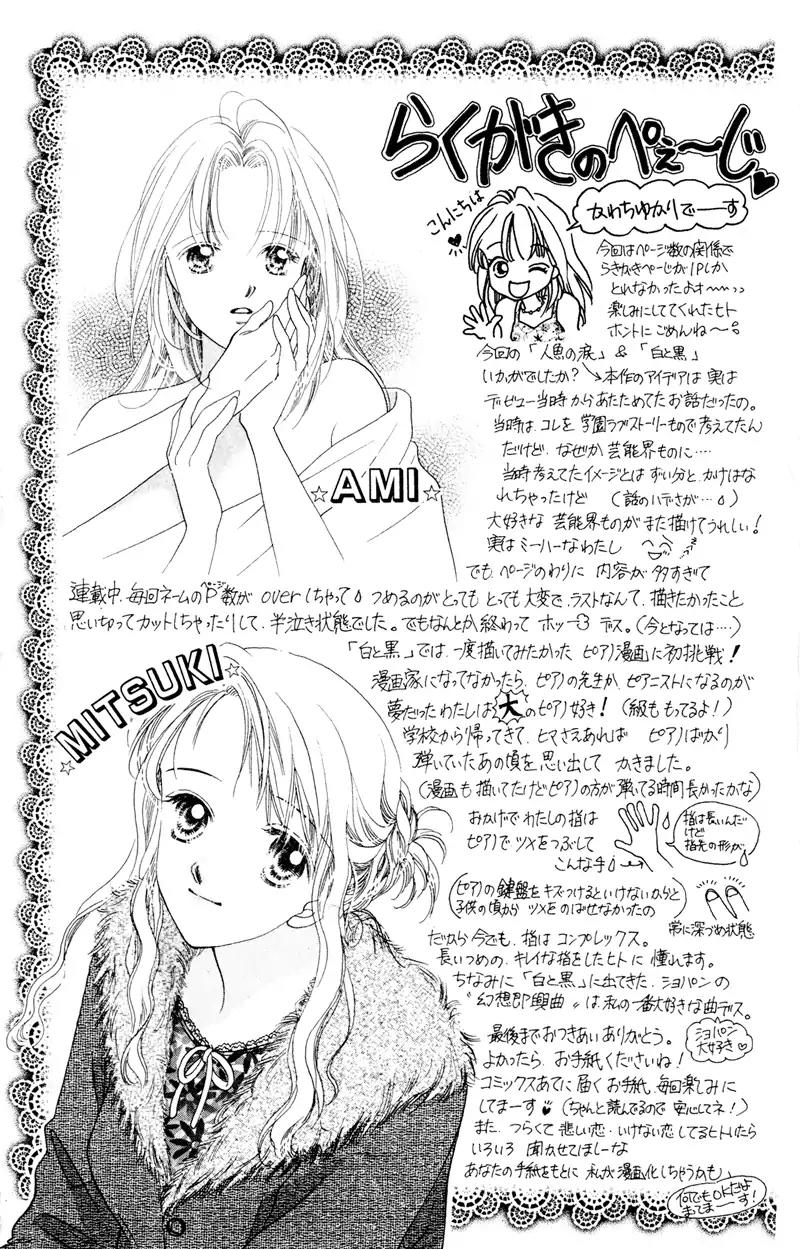 らくがきのぺぇ〜じ♥
こんにちは♥
かわちゆかりでーーす
今回はページ数の関係で
らきがきページが1Pしか
とれなかったよォ〜〜ッッ
楽しみにしててくれたヒト
ホントにごめんね〜。
今回の「人魚の涙」&「白と黒」
いかがでしたか?→本作のアイデアは実は
デビュー当時からあたためてたお話だったの。
当時は、コレを学園ラブストーリーもので考えてたん
だけど、なぜか芸能界ものに…。
当時考えてたイメージとはずい分と、かけはな
れちゃったけど(話のハデさが…)
大好きな芸能界ものがまた描けてうれしい!
実はミーハーなわたし
でも、ページのわりに内容が多すぎて
☆AMI☆
連載中、毎回ネームのP数がoverしちゃって つめるのがとってもとっても大変で、ラストなんて、描きたかったこと
ページ
思い切ってカットしちゃったりして、半泣き状態でした。でもなんとか終わってホッ デス。(今となっては…)
☆MITSUKI☆
「白と黒」では、一度描いてみたかったピアノ漫画に初挑戦!
漫画家になってなかったら、ピアノの先生か、ピアニストになるのが
夢だったわたしは大のピアノ好き!(級ももってるよ!)
学校から帰ってきて、ヒマさえあれば ピアノばかり
弾いていたあの頃を思い出して かきました。
(漫画も描いてたけどピアノの方が弾いてる時間長かったかな)
おかげでわたしの指は
ピアノでツメをつぶして
こんな手→
指は長いんだ
けど
指先の形が
(ピアノの鍵盤をキズつけるといけないからと
子供の頃からツメをのばせなかったの)
常に深づめ状態
だから今でも、指はコンプレックス。
長いつめの、キレイな指をしたヒトに憧れます。
ちなみに「白と黒」に出てきた、ショパンの
"幻想即興曲"は私の一番大好きな曲デス。
ショパン
大好き♥
最後までおつきあいありがとう。
よかったら、お手紙くださいね!
コミックスあてに届くお手紙、毎回楽しみに
してまーす♥(ちゃんと読んでるので安心してネ!)
また、つらくて悲しい恋・いけない恋してるヒトいたら
いろいろ聞かせてほしーな
あなたの手紙をもとに私が漫画化しちゃうかも、
何でもOKだよ
まってまーーす!